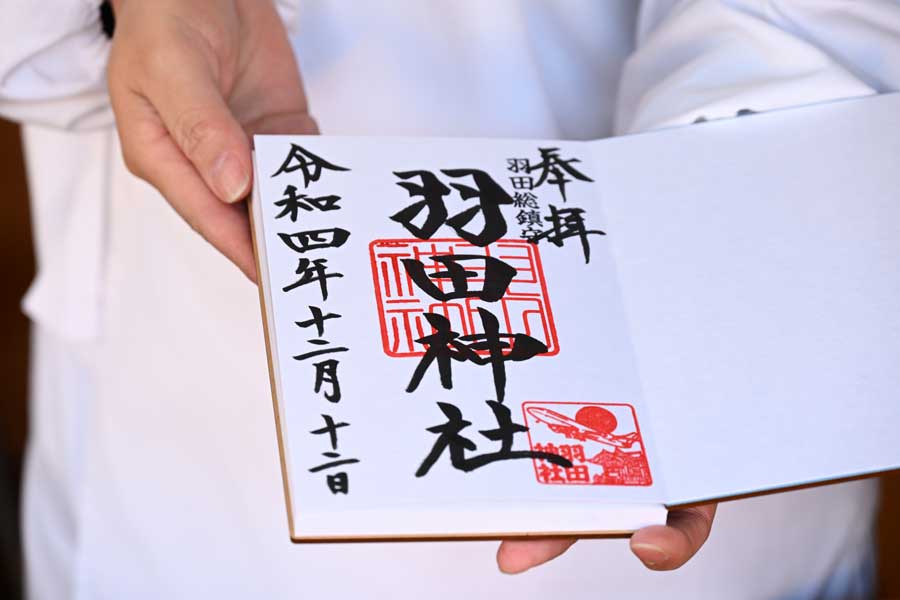 奉拝
羽田総鎮守
羽田神社
羽田
神社
令和四年十二月十二日